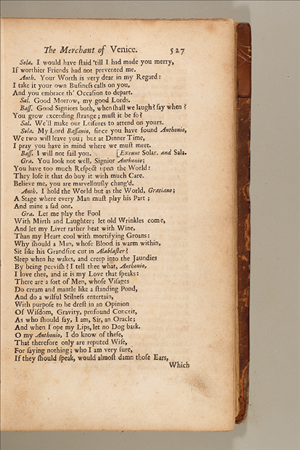 The Merchant of Venice. 527
Sola. I would have ſtaid 'till I had made you merry,
If worthier Friends had not prevented me.
Anth. Your Worth is very dear in my Regard:
I take it your own Buſineſs calls on you,
And you embrace th' Occaſion to depart.
Sal. Good Morrow, my good Lords.
Baſſ. Good Signiors both, when ſhall we laugh? ſay when?
You grow exceeding ſtrange; muſt it be ſo?
Sal. We'll make our Leiſures to attend on yours.
Sola. My Lord Baſſanio, ſince you have found Anthonio,
We two will leave you; but at Dinner Time,
I pray you have in mind where we muſt meet.
Baſſ. I will not fail you. [Exeunt Solar. and Sala.
Gra. You look not well, Signior Anthonio;
You have too much Reſpect upon the World:
They loſe it that do buy it with much Care.
Believe me, you are marvellouſly chang'd.
Anth. I hold the World but as the World, Gratiano;
A Stage where every Man muſt play his Part;
And mine a ſad one.
Gra. Let me play the Fool
With Mirth and Laughter; let old Wrinkles come,
And let my Liver rather heat with Wine,
Than my Heart cool with mortifying Groans:
Why ſhould a Man, whoſe Blood is warm within,
Sit like his Grandſire cut in Alablaſter?
Sleep when he wakes, and creep into the Jaundies
By being peeviſh? I tell thee what, Anthonio,
I love thee, and it is my Love that ſpeaks:
There are a ſort of Men, whoſe Viſages
Do cream and mantle like a ſtanding Pond,
And do a wilful Stilneſs entertain,
With purpoſe to be dreſt in an Opinion
Of Wiſdom, Gravity, profound Conceit,
As who ſhould ſay, I am, Sir, an Oracle;
And when I ope my Lips, let no Dog bark.
O my Anthonio, I do know of theſe,
That therefore only are reputed Wiſe,
For ſaying nothing; who I am very ſure,
If they ſhould ſpeak, would almoſt damn thoſe Ears,
Which